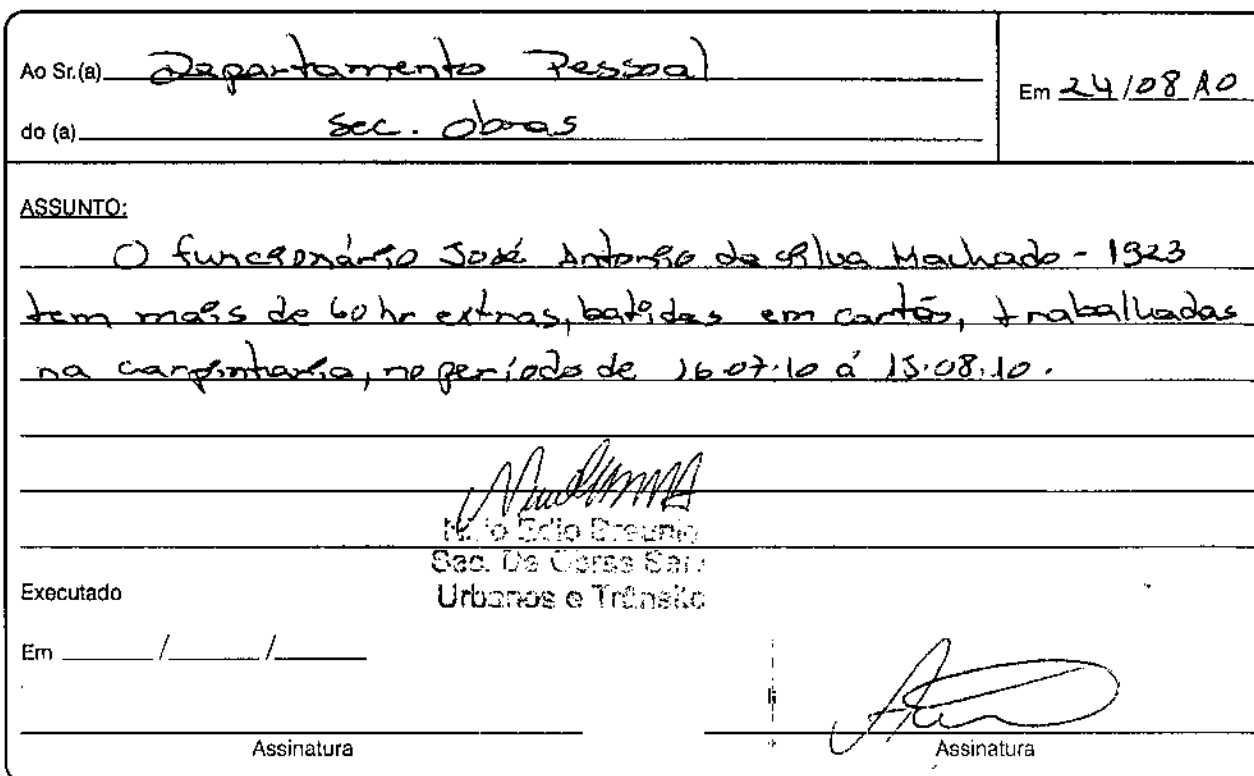 Ao Sr.(a) Departamento Pessoal
Em 24/08/10
do (a) Sec. Obras
ASSUNTO:
O funcionário José Antonio da Silva Machado - 1923
tem mais de 60 hr extras, batidas em cartão, trabalhadas
na carpintaria, no período de 16.07.10 á 15.08.10.
Sec. De Obras
Urbanos e Trânsito
Executado
Em ___/___/___
Assinatura
Assinatura